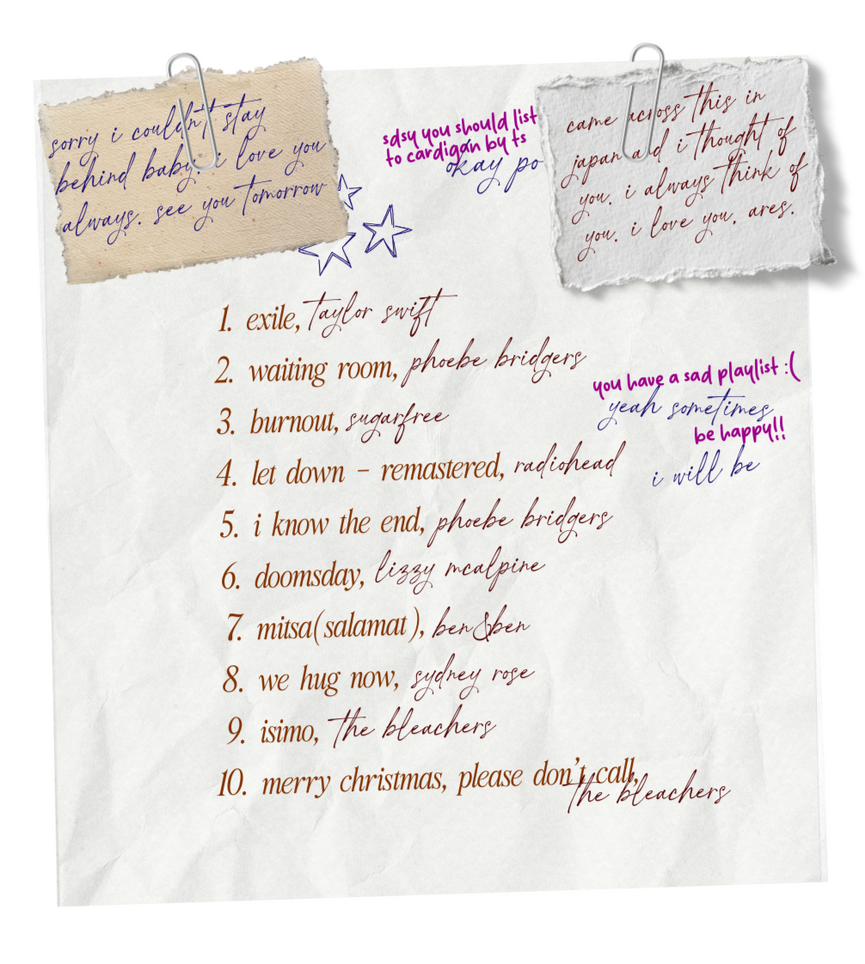 sorry i couldn't stay
behind baby. i love you
always. see you tomorrow
sdsy you should list
to cardigan by ts
okay po
came across this in
japan and i thought of
you. i always think of
you. i love you, ares.
1. exile, taylor swift
2. waiting room, phoebe bridgers
3. burnout, sugarfree
you have a sad playlist :(
yeah sometimes
be happy!!
i will be
4. let down - remastered, radiohead
5. i know the end, phoebe bridgers
6. doomsday, lizzy mcalpine
7. mitsa(salamat), ben&ben
8. we hug now, sydney rose
9. isimo, the bleachers
10. merry christmas, please don't call,
the bleachers